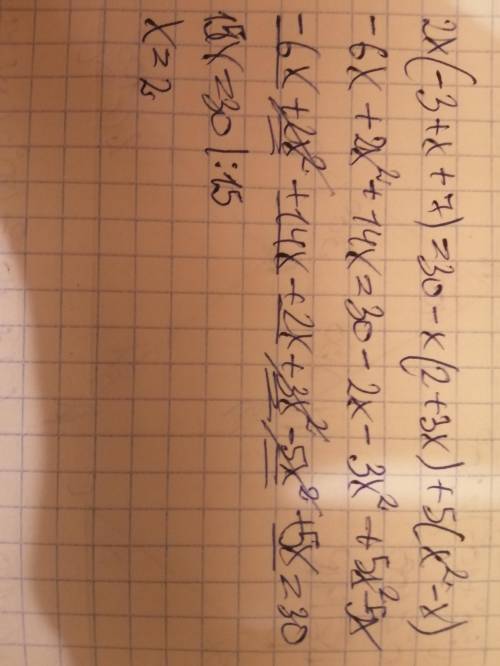 2x(-3+x+7)=30-x(2+3x)+5(x²-x)
-6x+2x²+14x=30-2x-3x²+5x²-5x
-6x+2x²+14x+2x+3x²-5x²+5x=30
15x=30 |:15
x=2